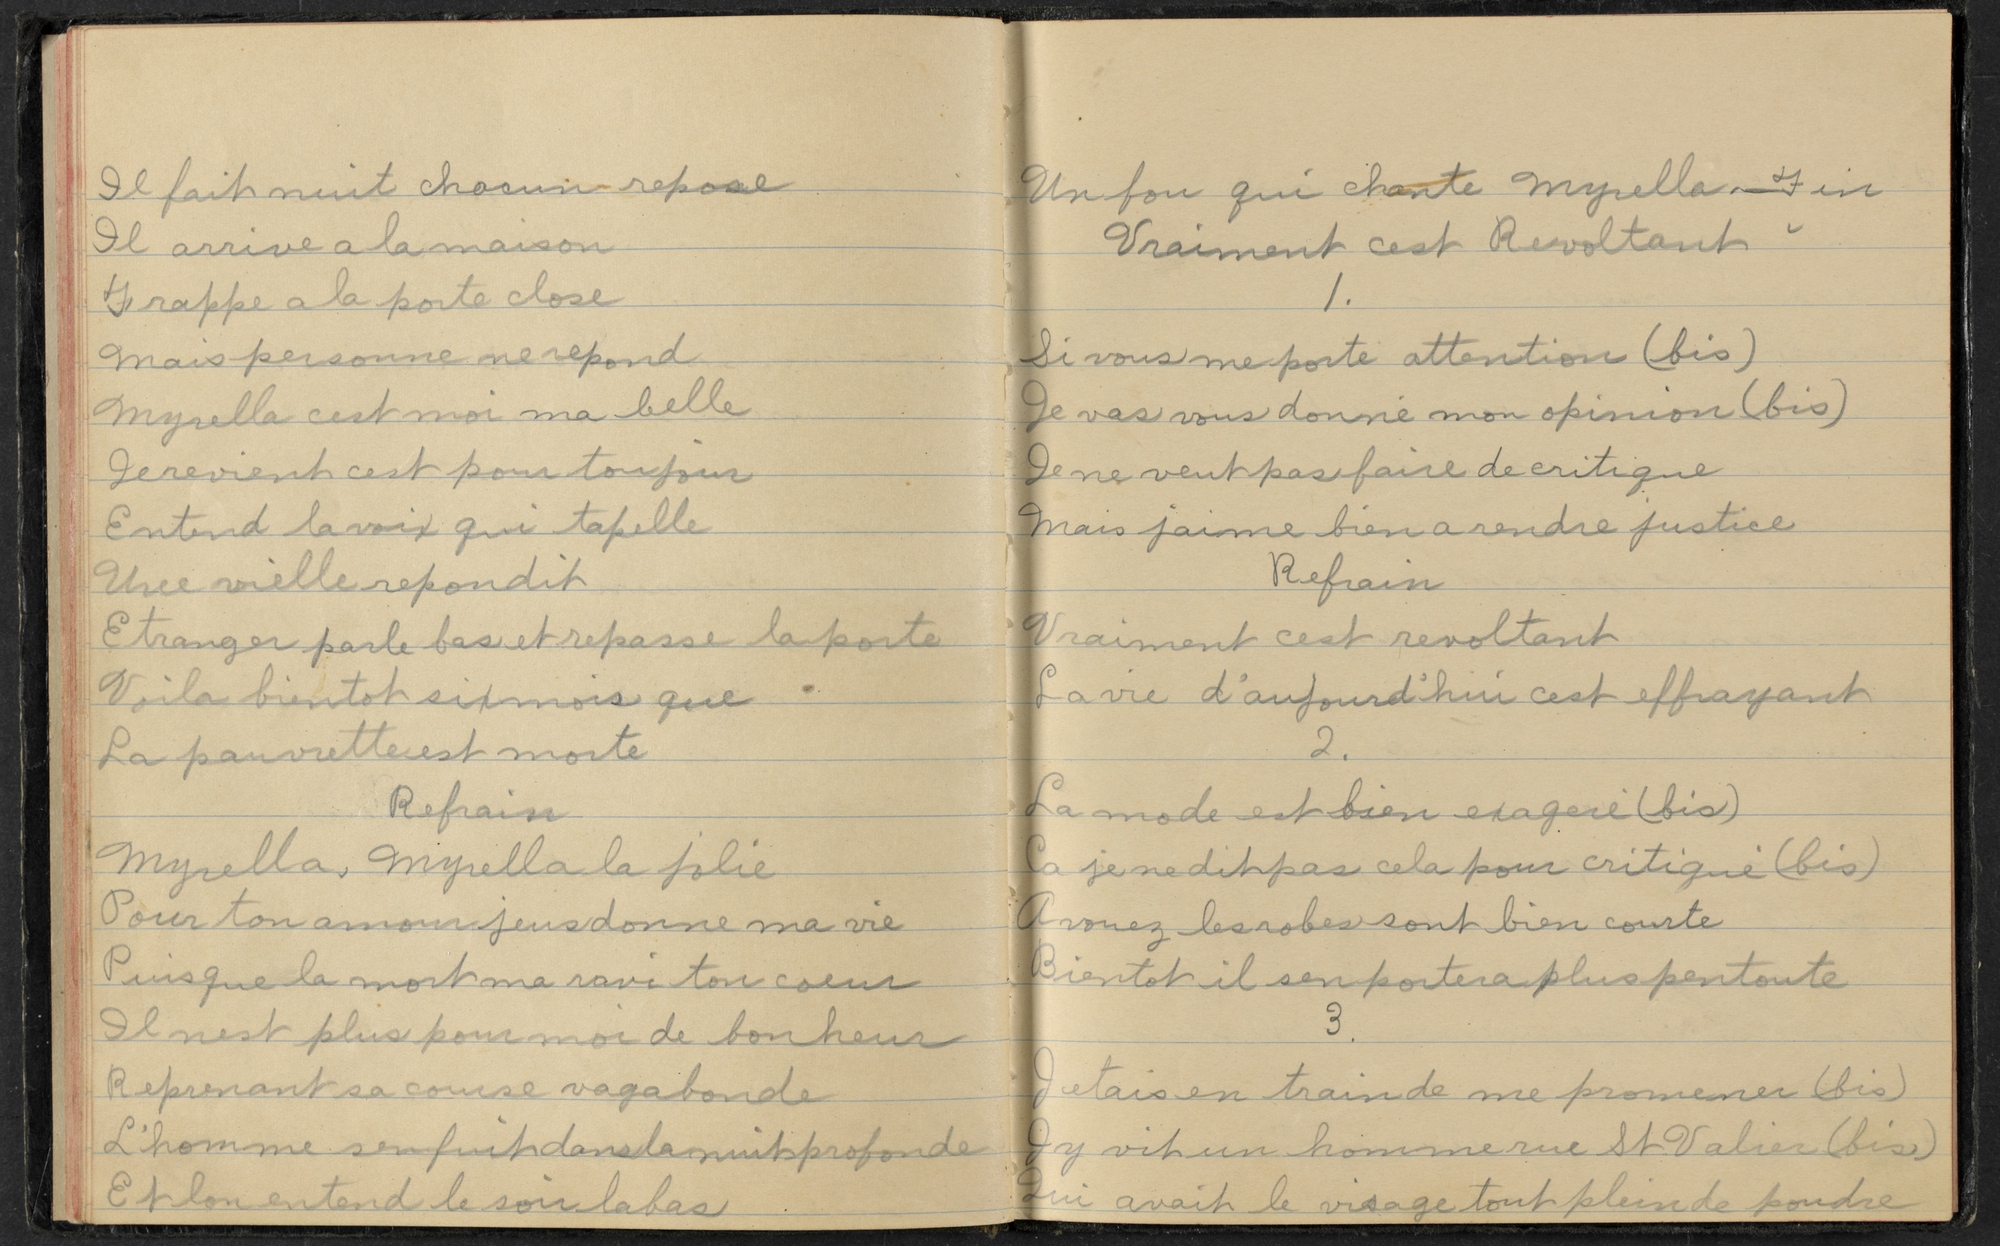 Il fait nuit chacun repose
Il arrive a la maison
Frappe a la porte close
Mais personne ne repond
Myrella cest moi ma belle
Je revient cest pour toujour
Entend la voix qui tapelle
Une vielle repondit
Etranger parle bas et repasse la porte
Voila bientot six mois que
La pauvrette est morte
Refrain
Myrella, Myrella la jolie
Pour ton amour jeus donne ma vie
Puisque la mort ma ravi ton coeur
Il nest plus pour moi de bonheur
Reprenant sa course vagabonde
L'homme senfuit dans la nuit profonde
Et lon entend le soir labas
Un fou qui chante Myrella. Fin
Vraiment cest Revoltant
1.
Si vous me porte attention (bis)
Je vas vous donné mon opinion (bis)
Je ne veut pas faire de critique
Mais jaime bien a rendre justice
Refrain
Vraiment cest revoltant
La vie d'aujourd'hui cest effrayant
2.
La mode est bien exageré (bis)
Ca je ne dit pas cela pour critiqué (bis)
Avouez les robes sont bien courte
Bientot il senportera plus pentoute
3.
Jetais en train de me promener (bis)
Jy vit un homme rue St Valier (bis)
Qui avait le visage tout plein de poudre